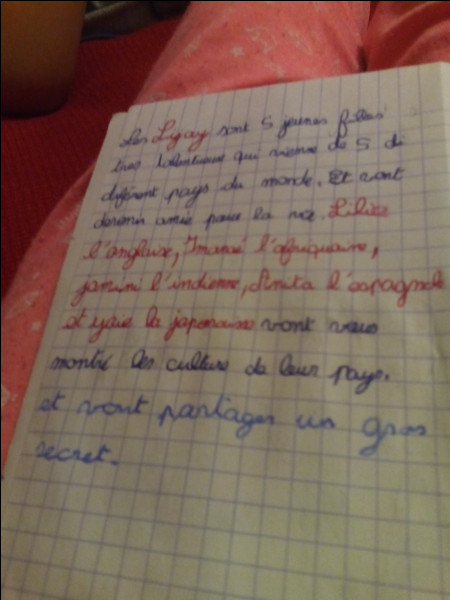 Les Lyay sont 5 jeunes filles
très talentueuse qui vienne de 5 di
différent pays du monde. Et vont
devenir amie pour la vie. Lilia
l'anglaise, Imané l'afriquaine,
jamini l'indienne, Anita l'espagnole
et yaie la japonaise vont vous
montré les culture de leur pays.
et vont partager un gros
secret.